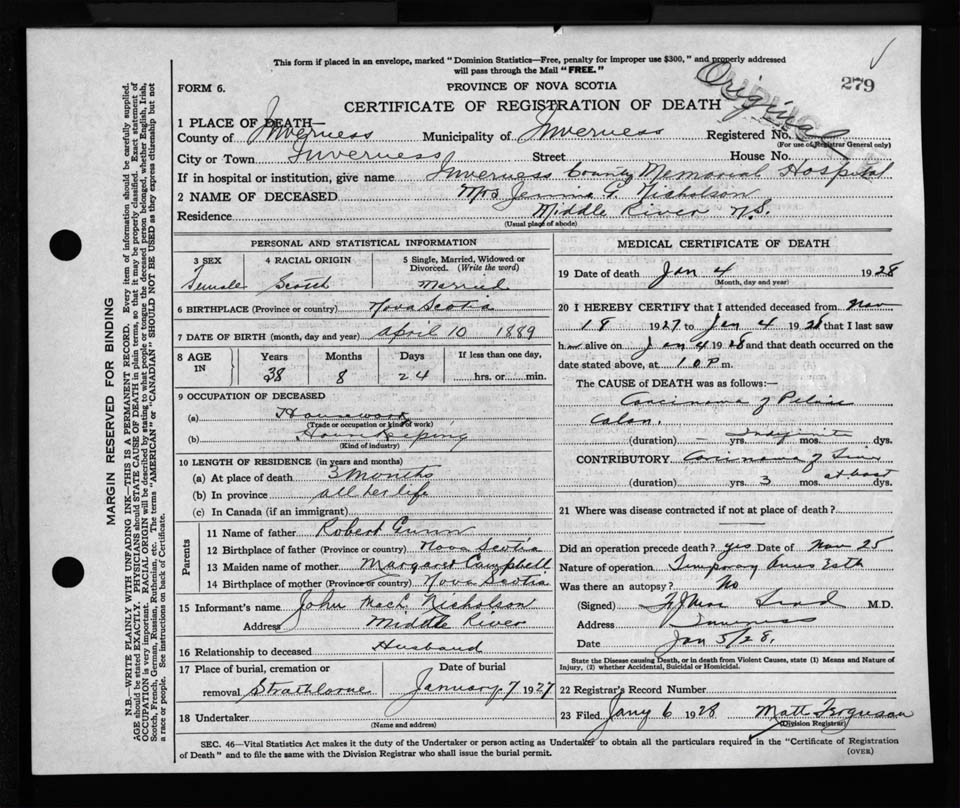 This form if placed in an envelope, marked "Dominion Statistics—Free, penalty for improper use $300," and properly addressed
will pass through the Mail "FREE."
Original
279
FORM 6.
PROVINCE OF NOVA SCOTIA
CERTIFICATE OF REGISTRATION OF DEATH
1 PLACE OF DEATH—
County of Inverness Municipality of Inverness Registered No.
(For use of Registrar General only)
City or Town Inverness Street House No.
If in hospital or institution, give name Inverness County Memorial Hospital
2 NAME OF DECEASED Mrs Jennie G. Nicholson
Residence Middle River N.S.
(Usual place of abode)
PERSONAL AND STATISTICAL INFORMATION
3 SEX 4 RACIAL ORIGIN 5 Single, Married, Widowed or Divorced. (Write the word)
Female Scotch Married
6 BIRTHPLACE (Province or country) Nova Scotia
7 DATE OF BIRTH (month, day and year) April 10 1889
8 AGE IN Years Months Days If less than one day,
38 8 24 hrs. or min.
9 OCCUPATION OF DECEASED
(a) Housework
(Trade or occupation or kind of work)
(b) House Keeping
(Kind of industry)
10 LENGTH OF RESIDENCE (in years and months)
(a) At place of death 3 Months
(b) In province all her life
(c) In Canada (if an immigrant)
Parents
11 Name of father Robert Gunn
12 Birthplace of father (Province or country) Nova Scotia
13 Maiden name of mother Margaret Campbell
14 Birthplace of mother (Province or country) Nova Scotia
15 Informant's name John MacL. Nicholson
Address Middle River
16 Relationship to deceased Husband
17 Place of burial, cremation or Date of burial
removal Strathlorne January 7 1927
18 Undertaker
(Name and address)
MEDICAL CERTIFICATE OF DEATH
19 Date of death Jan 4 1928
(Month, day and year)
20 I HEREBY CERTIFY that I attended deceased from Nov
18 1927 to Jan 4 1928 that I last saw
h alive on Jan 4 1928 and that death occurred on the
date stated above, at 10 P m.
The CAUSE of DEATH was as follows:—
Carcinoma of Pelvic
Colon.
(duration) — yrs. Indefinite mos. dys.
CONTRIBUTORY Carcinoma of Liver
(duration) yrs. 3 mos. at least dys.
21 Where was disease contracted if not at place of death?
Did an operation precede death? yes Date of Nov 25
Nature of operation Temporary Anus
Was there an autopsy? No
(Signed) M.D.
Address Inverness
Date Jan 5/28.
State the Disease causing Death, or in death from Violent Causes, state (1) Means and Nature of
Injury, (2) whether Accidental, Suicidal or Homicidal.
22 Registrar's Record Number
23 Filed Jany 6 1928 Matt Ferguson
(Division Registrar)
SEC. 46—Vital Statistics Act makes it the duty of the Undertaker or person acting as Undertaker to obtain all the particulars required in the "Certificate of Registration
of Death" and to file the same with the Division Registrar who shall issue the burial permit.
(OVER)
MARGIN RESERVED FOR BINDING
N.B.—WRITE PLAINLY WITH UNFADING INK—THIS IS A PERMANENT RECORD. Every item of information should be carefully supplied.
AGE should be stated EXACTLY. PHYSICIANS should STATE CAUSE OF DEATH in plain terms, so that it may be properly classified. Exact statement of
OCCUPATION is very important. RACIAL ORIGIN will be described by stating to what people or tongue the deceased person belonged, whether English, Irish,
Scotch, French, German, Russian, Ruthenian, etc. The terms "AMERICAN" or "CANADIAN" SHOULD NOT BE USED as they express citizenship but not
a race or people. See instructions on back of Certificate.